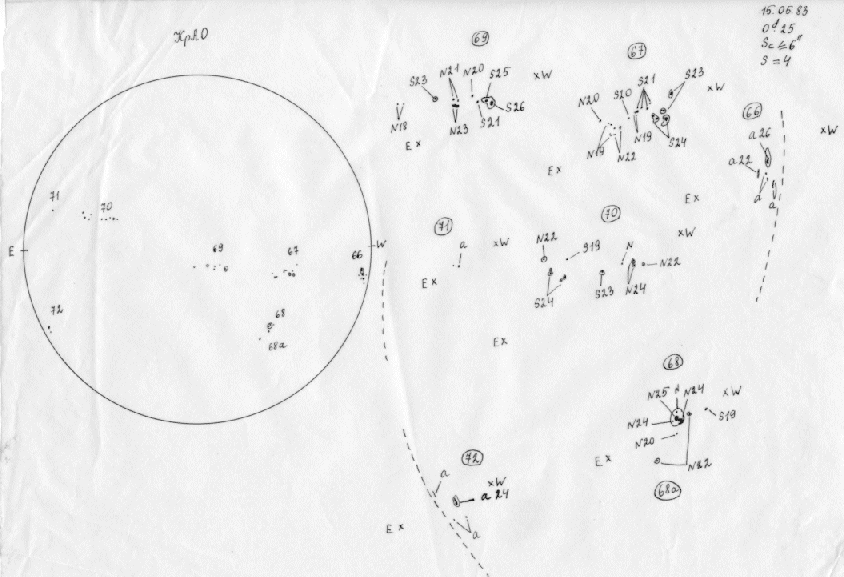 15.06.83
S = 4
69
S23
N21
N20
S25
xW
S26
S21
N23
N18
Ex
67
S21
S23
xW
S20
N20
N19
N19
N22
S24
Ex
66
a26
a22
a
a
xW
Ex
E
W
71
70
69
67
66
72
68
68a
71
a
xW
Ex
70
N22
S19
N
xW
N22
S24
S23
N24
Ex
68
N25
N24
xW
S19
N24
N20
N22
Ex
68a
72
a
xW
a24
a
Ex